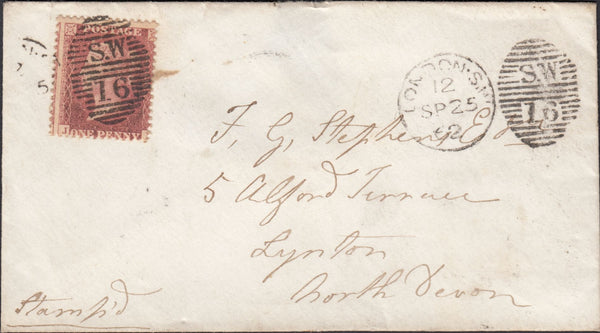 POSTAGE
S.W
16
ONE PENNY
LONDON.S.W
12
SP 25
62
S.W
16
F. G. Stephens Esq
5 Alford Terrace
Lynton
North Devon
Stamp'd